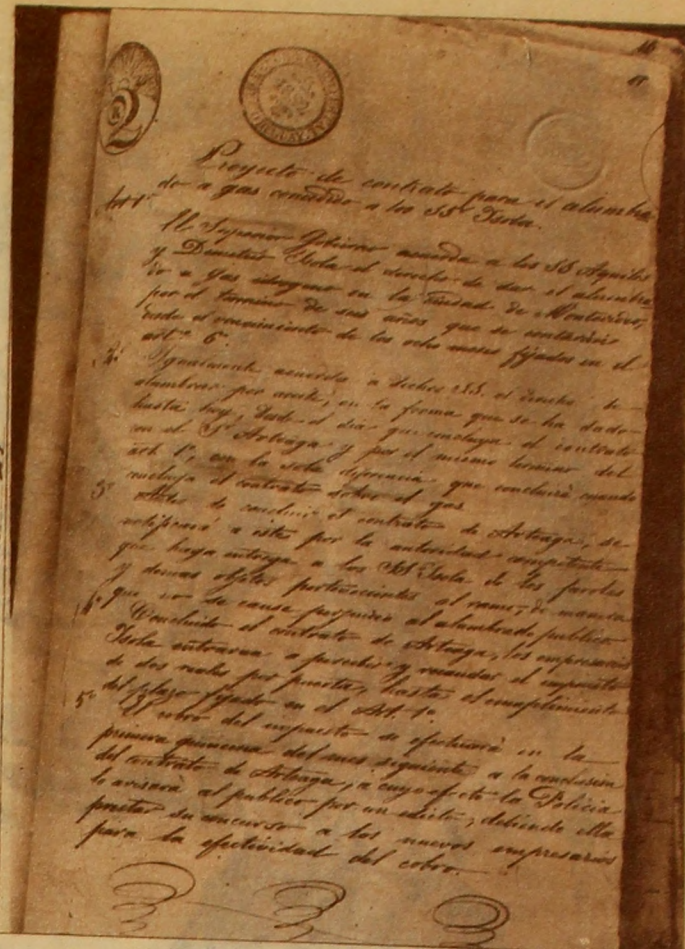 Proyecto de contrato para el alumbra
do a gas concedido a los SSres Isola.
Art 1º
El Superior Gobierno acuerda a los SS Aquiles
y Demetrio Isola el derecho de dar el alumbra
do a gas idrogeno en la Ciudad de Montevideo,
por el termino de seis años que se contarán
desde el vencimiento de los ocho meses fijados en el
artº 6º
2º Igualmente acuerda a dichos SS. el derecho de
alumbrar por aceite, en la forma que se ha dado
hasta hoy, desde el dia que concluya el contrato
con el Sr Arteaga y por el mismo termino del
art. 1º, con la sola diferencia que concluirá cuando
concluya el contrato sobre el gas
3º Antes de concluir el contrato de Arteaga, se
notificará a este por la autoridad competente
que haga entrega a los SS Isola de los faroles
y demas objetos pertenecientes al ramo, de manera
que no se cause perjuicio al alumbrado publico
4º Concluido el contrato de Arteaga, los empresarios
Isola entrarán a percibir y recaudar el impuesto
de dos reales por puerta, hasta el cumplimiento
del plazo fijado en el Art. 1º
5º El cobro del impuesto se efectuará en la
primera quincena del mes siguiente a la conclusion
del contrato de Arteaga, a cuyo efecto la Policia
lo avisará al publico por un edicto, debiendo ella
prestar su concurso a los nuevos empresarios
para la efectividad del cobro.